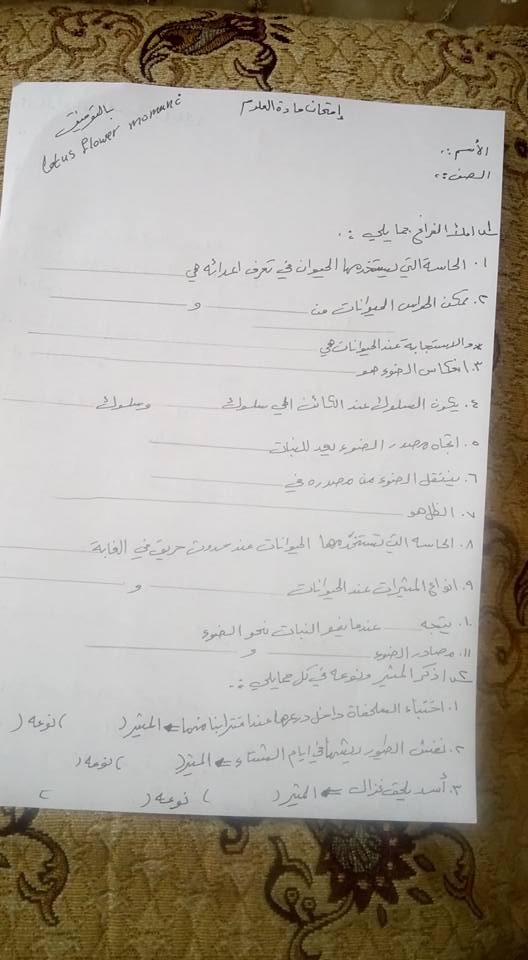 إمتحان مادة العلوم
بالتوفيق
Lotus flower momani
الأسم :.
الصف :.
س١ املأ الفراغ بما يلي :.
١. الحاسة التي يستخدمها الحيوان في تعرف اعدائه هي
٢. يمكن الحيوانات من و
* والاستجابة عند الحيوانات هي
٣. انعكاس الضوء هو
٤. يكون السلوك عند الكائن الحي سلوك وسلوك
٥. اتجاه مصدر الضوء يعد للنبات
٦. ينتقل الضوء من مصدره في
٧. الظل هو
٨. الحاسه التي تستخدمها الحيوانات عند حدوث حريق في الغابة
٩. انواع المثيرات عند الحيوانات و
١٠. يتجه عندما ينمو النبات نحو الضوء
١١. مصادر الضوء و
س٢ اذكر المثير ونوعه في كل مما يلي :.
١. اختباء السلحفاة داخل درعها عند اقترابنا منها ← المثير ( ) نوعه (
٢. نفش الطيور ريشها في ايام الشتاء ← المثير ( ) نوعه (
٣. أسد يلحق غزال ← المثير ( ) نوعه ( )